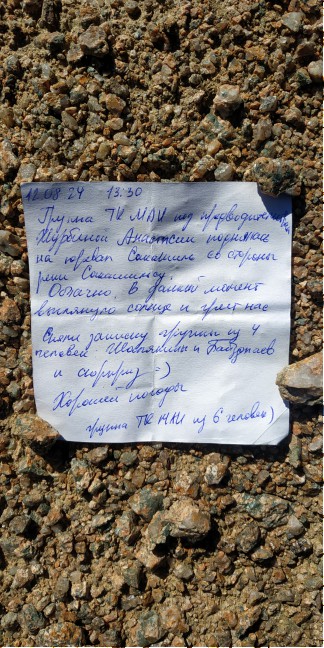 12.08.24 13:30
Группа ТК МАИ из предводительства
Журбиной Анастасии поднялась
на перевал со стороны
реки
Облачно. В данный момент
выглянуло солнце и греет нас
Сняли записку группы из 4
человек и
и сюрприз =)
Хорошей погоды
группа ТК МАИ из 6 человек)